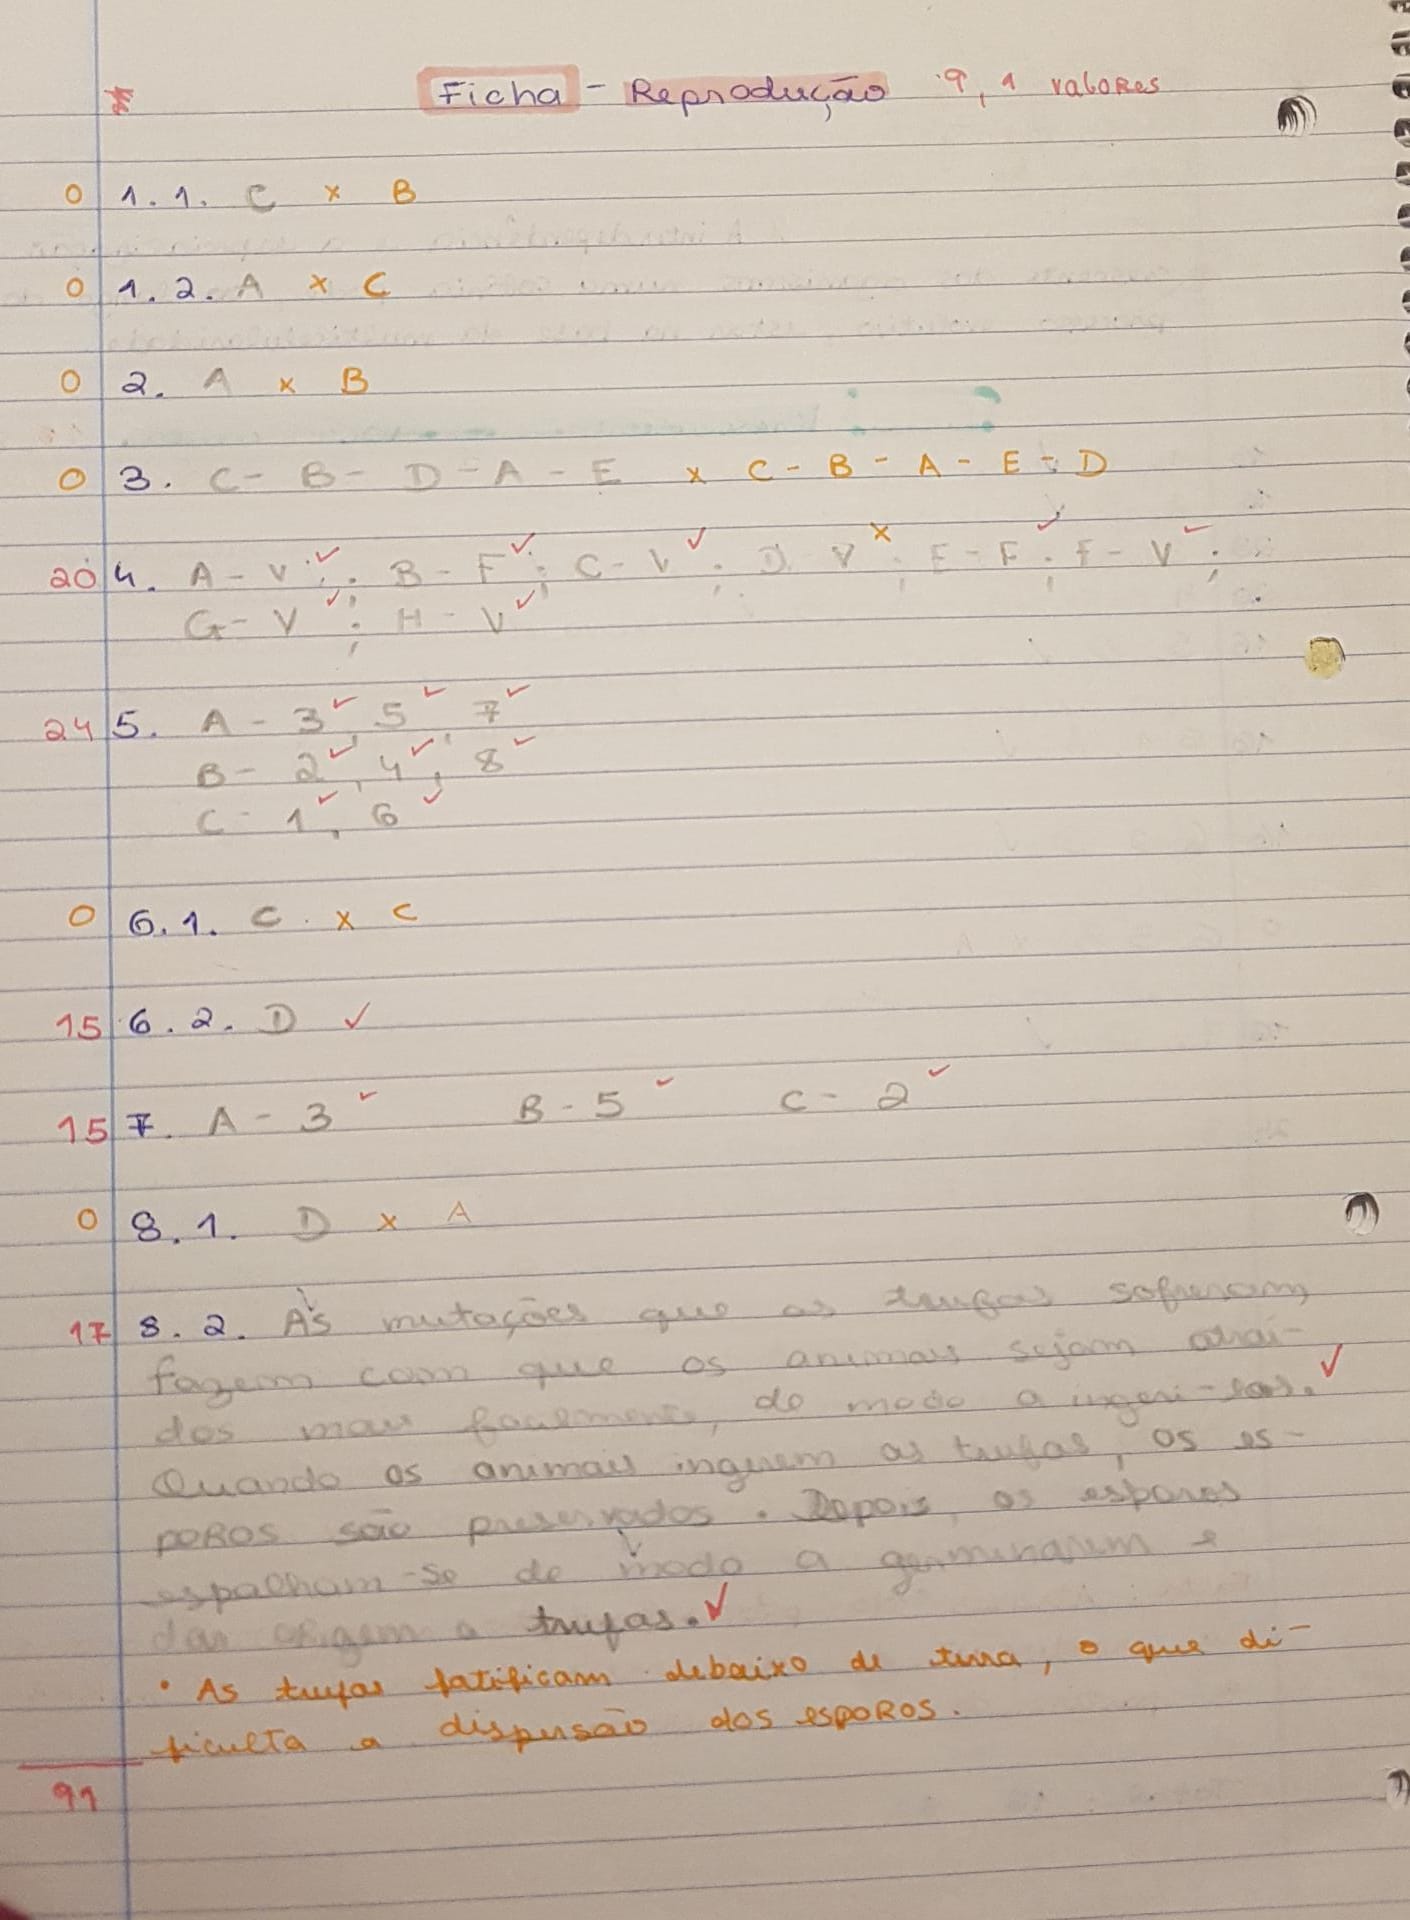 Ficha - Reprodução 9,1 valores
0 1.1. C x B
0 1.2. A x C
0 2. A x B
0 3. C - B - D - A - E x C - B - A - E - D
20 4. A - V ✓; B - F ✓; C - V ✓; D - V x; E - F ✓; F - V ✓;
G - V ✓; H - V ✓
24 5. A - 3 ✓, 5 ✓, 7 ✓
B - 2 ✓, 4 ✓, 8 ✓
C - 1 ✓, 6 ✓
0 6.1. C x C
15 6.2. D ✓
15 7. A - 3 ✓ B - 5 ✓ C - 2 ✓
0 8.1. D x A
17 8.2. As mutações que as trufas sofreram
fazem com que os animais sejam atraí-
dos mais facilmente, de modo a ingeri-las. ✓
Quando os animais inguem as trufas, os es-
poros são preservados. Depois, os esporos
espalham-se de modo a germinarem e
dar origem a trufas. ✓
• As trufas fatificam debaixo de terra, o que di-
ficulta a dispersão dos esporos.
91